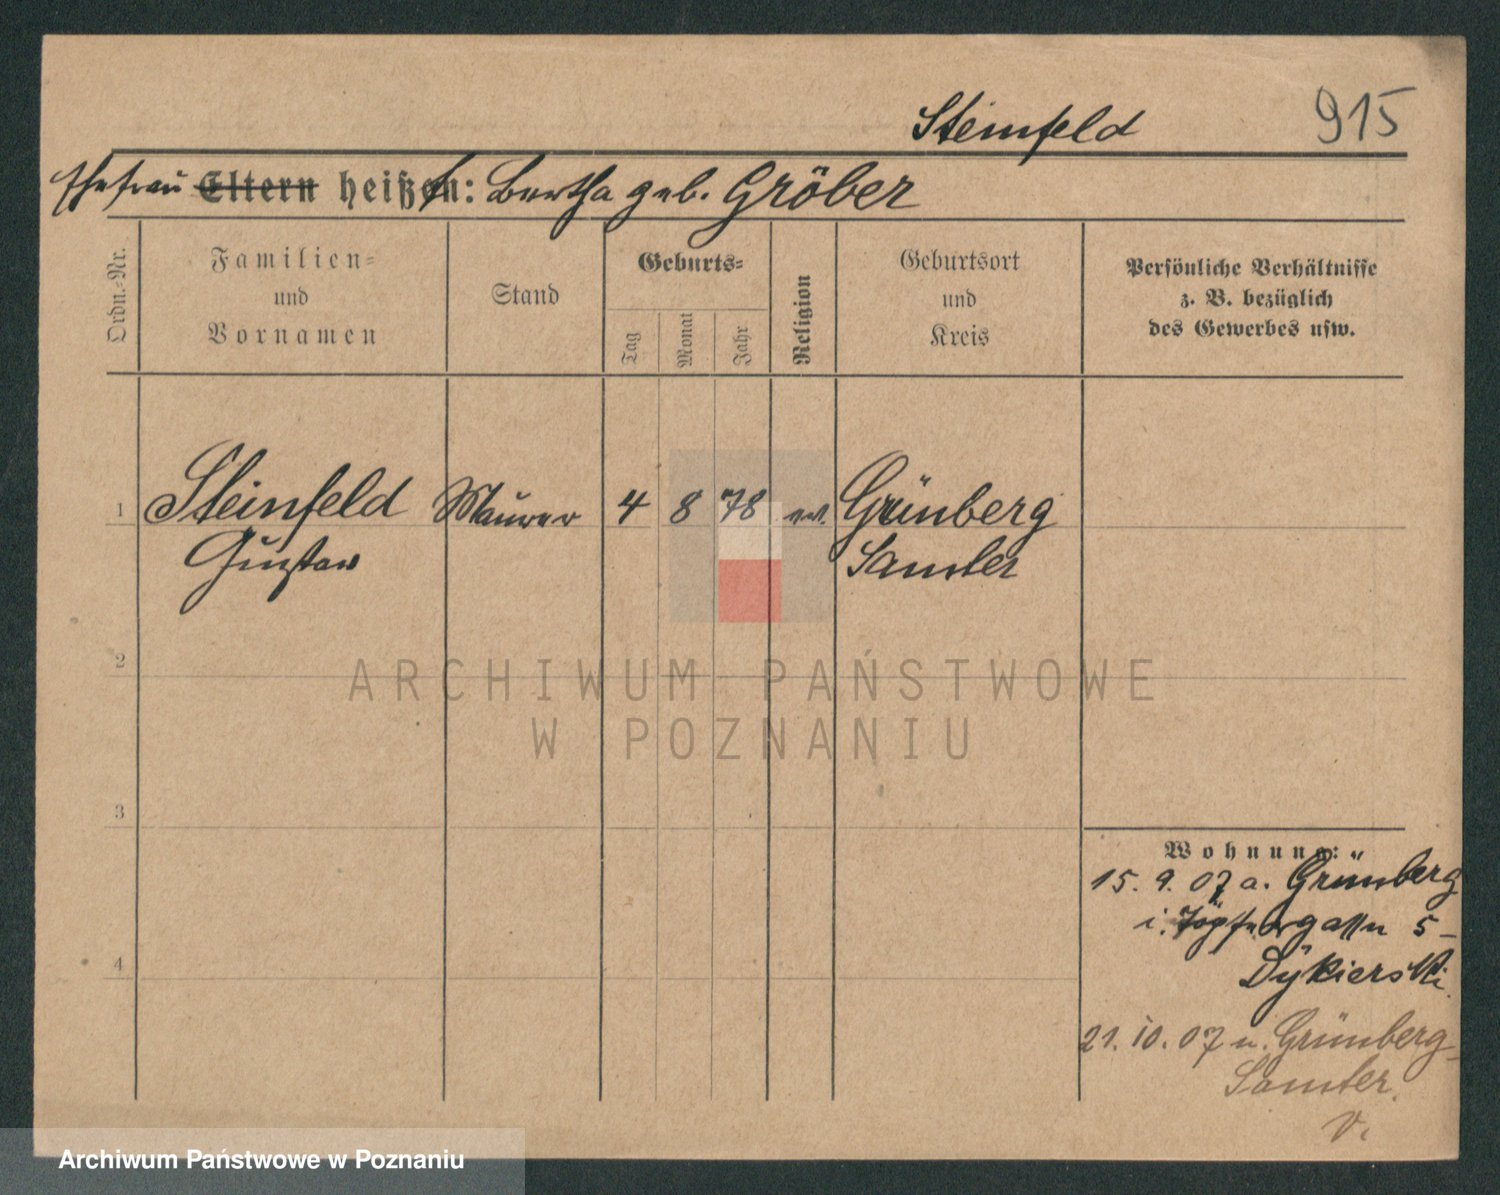 Steinfeld 915
Ehefrau Eltern heißen: Bertha geb. Gröber
Ordn.-Nr.
Familien-
und
Vornamen
Stand
Geburts-
Tag
Monat
Jahr
Religion
Geburtsort
und
Kreis
Persönliche Verhältnisse
z. B. bezüglich
des Gewerbes usw.
1 Steinfeld Maurer 4 8 78 ev. Grünberg
Gustav Samter
2
ARCHIWUM PAŃSTWOWE
W POZNANIU
3
Wohnung:
15. 9. 07 a. Grünberg
i. Töpfergasse 5
Dykierski
4
21. 10. 07 n. Grünberg
Samter.
V.
Archiwum Państwowe w Poznaniu